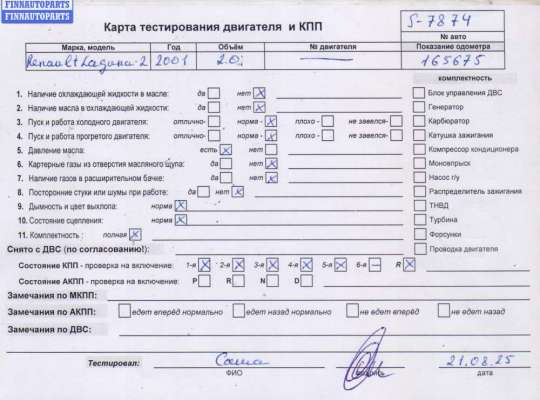 FINNAUTOPARTS
FINNAUTOPARTS
Карта тестирования двигателя и КПП
S-7874
№ авто
Марка, модель Год Объём № двигателя Показание одометра
Renault Laguna-2 2001 2.0i 165675
комплектность
1. Наличие охлаждающей жидкости в масле: да нет Блок управления ДВС
2. Наличие масла в охлаждающей жидкости: да нет Генератор
3. Пуск и работа холодного двигателя: отлично- норма - плохо - не завелся- Карбюратор
4. Пуск и работа прогретого двигателя: отлично- норма - плохо - не завелся- Катушка зажигания
5. Давление масла: есть нет Компрессор кондиционера
6. Картерные газы из отверстия масляного щупа: да нет Моновпрыск
7. Наличие газов в расширительном бачке: да нет Насос г/у
8. Посторонние стуки или шумы при работе: да нет Распределитель зажигания
9. Дымность и цвет выхлопа: норма ТНВД
10. Состояние сцепления: норма Турбина
11. Комплектность : полная Форсунки
Снято с ДВС (по согласованию!): Проводка двигателя
Состояние КПП - проверка на включение: 1-я 2-я 3-я 4-я 5-я 6-я R
Состояние АКПП - проверка на включение: P R N D
Замечания по МКПП:
Замечания по АКПП: едет вперёд нормально едет назад нормально не едет вперёд не едет назад
Замечания по ДВС:
Тестировал: Саша 21.08.25
ФИО подпись дата